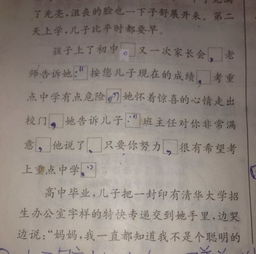 了光亮,沮丧的脸也一下子舒展开来。第二
天上学,儿子比平时都要早。
孩子上了初中。又一次家长会,老
师告诉她:“按您儿子现在的成绩,考重
点中学有点危险。”她怀着惊喜的心情走出
校门,她告诉儿子:“班主任对你非常满
意,他说了,只要你努力,很有希望考
上重点中学。”
高中毕业,儿子把一封印有清华大学招
生办公室字样的特快专递交到她手里,边哭
边说:“妈妈,我一直都知道我不是个聪明的